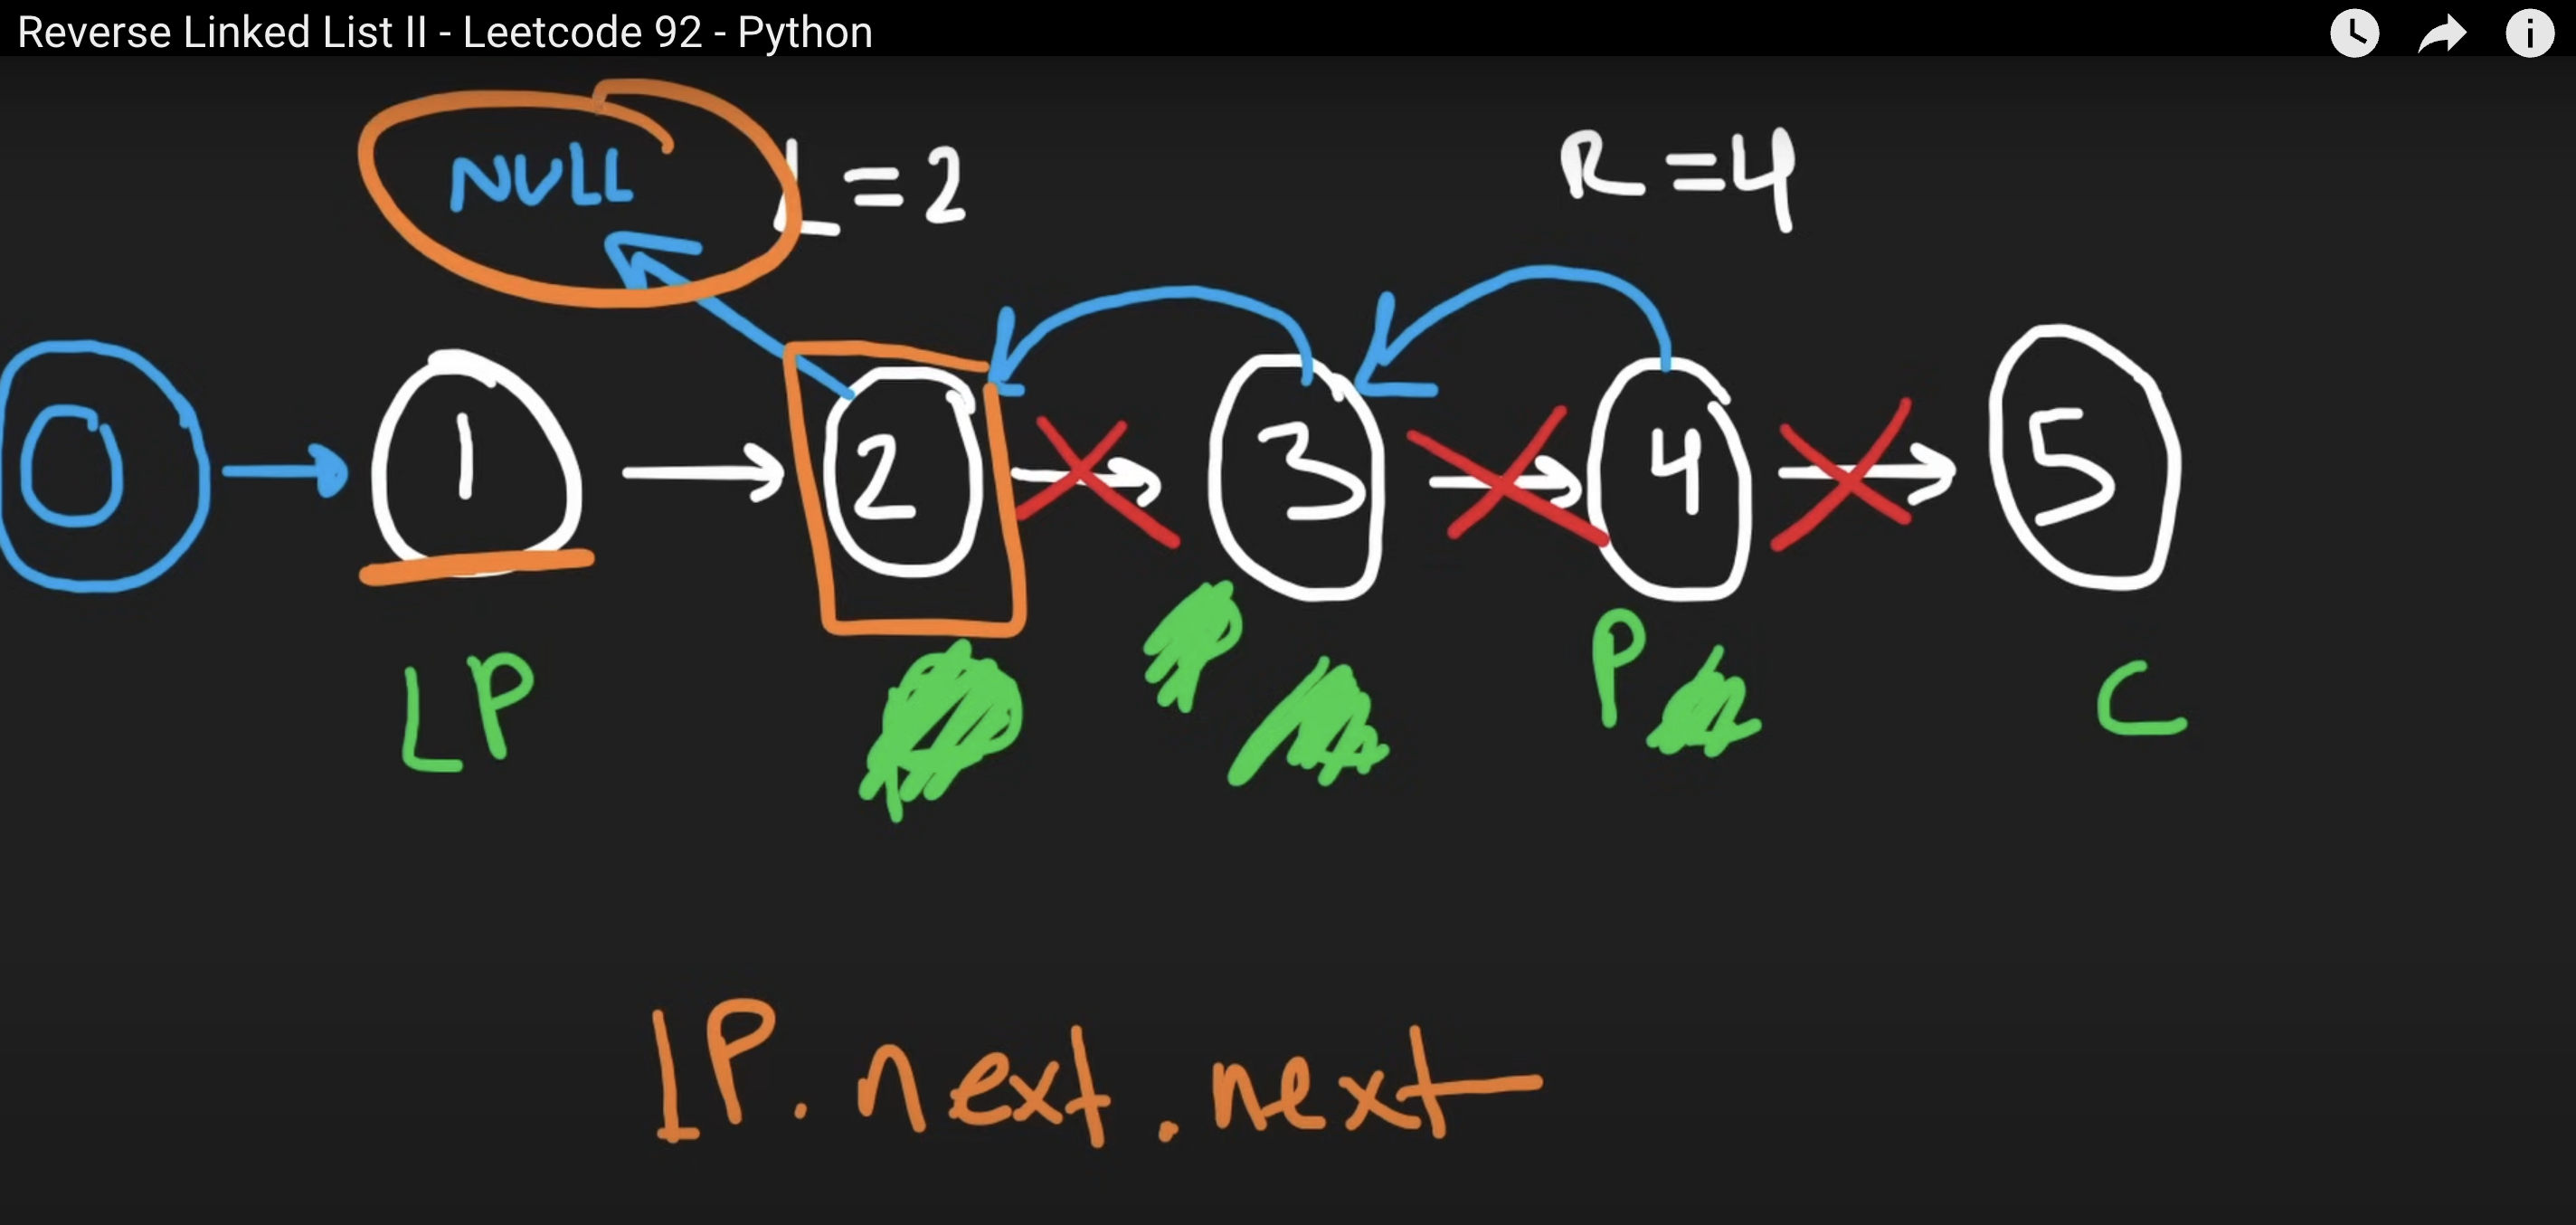 Reverse Linked List II - Leetcode 92 - Python
NULL L=2 R=4
0 1 2 3 4 5
LP P C
LP.next.next